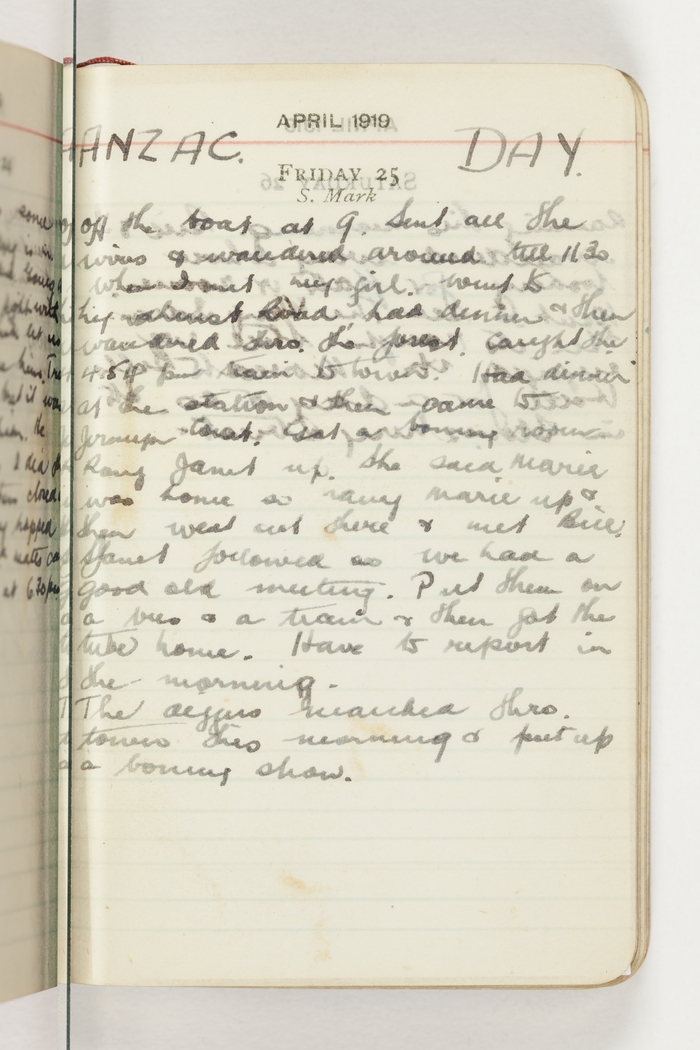 APRIL 1919
ANZAC. DAY.
FRIDAY 25
S. Mark
Off the boat at 9. Sent all the
wires & wandered around till 1130
when I met my girl. went to
had dinner & then
wandered thro. the forest. Caught the
4.58 pm train to town. Had dinner
at the station & then came to
Jermyn Court. Got a boning room
Rang Janet up. She said Marie
was home so rang Marie up &
then went out there & met Bill.
Janet followed so we had a
good old meeting. Put them on
a bus & a train & then got the
tube home. Have to report in
the morning.
The diggers marched thro.
town this morning & put up
a boning show.